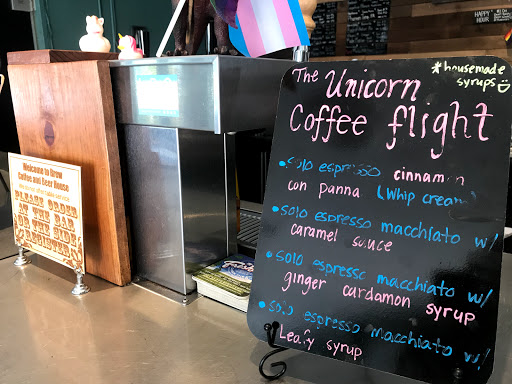 HAPPY
HOUR
The Unicorn
Coffee flight
*housemade
syrups
•solo espresso cinnamon
con panna (whip cream)
•solo espresso macchiato w/
caramel sauce
•solo espresso macchiato w/
ginger cardamon syrup
•solo espresso macchiato w/
Leafy syrup
Welcome to Brew
Coffee and Beer House
PLEASE ORDER
AT THE BAR
AT THE SIDE